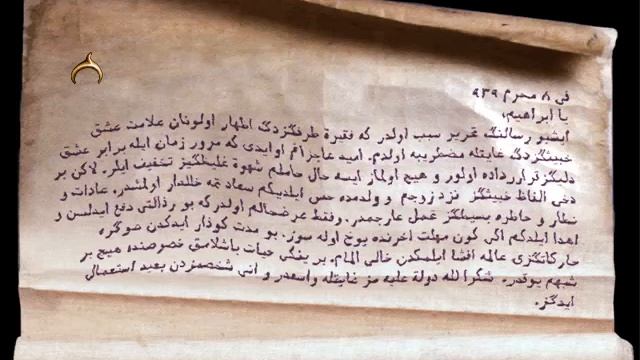 فی ٨ محرم ٩٣٩
یا ابراهیم،
ایشبو رسالنگ تحریر سبب اولدر که فقیرة طرفگزدگ اظهار اولونان علامت عشق
خبیثگزدگ غایتله مضطربه اولدم. امید عاجزانم اوایدی که مرور زمان ایله برابر عشق
دلیگز قرارداده اولور و هیچ اولماز ایسه حال حاملم شهوة غلیظگیز تخفیف ایلر. لاکن بر
دخی الفاظ خبیثگز نزد زوجم و ولدمده حس ایلدیگم سعادتمه خللدار اولمشدر. عادات و
نطار و خاطره بسیطگز تحمل عارجمدر. وفقط عرضحالم اولدر که بو رذالتی دفع ایدلسن و
اهدا ایلدگم اکی کون مهلت اخرنده یوح اوله سوز. بو مدت کوذار ایدکدن صوگره
حارکاتگزی عالمه افشا ایلمکدن خالی المام. بر ینگی حیات باشلامق خصوصنده هیچ بر
شبهم یوقدره شکرا لله دولة علیه مز غایتله واسعدر و انی شخصمزدن بعید استعمالی
ایدگز.